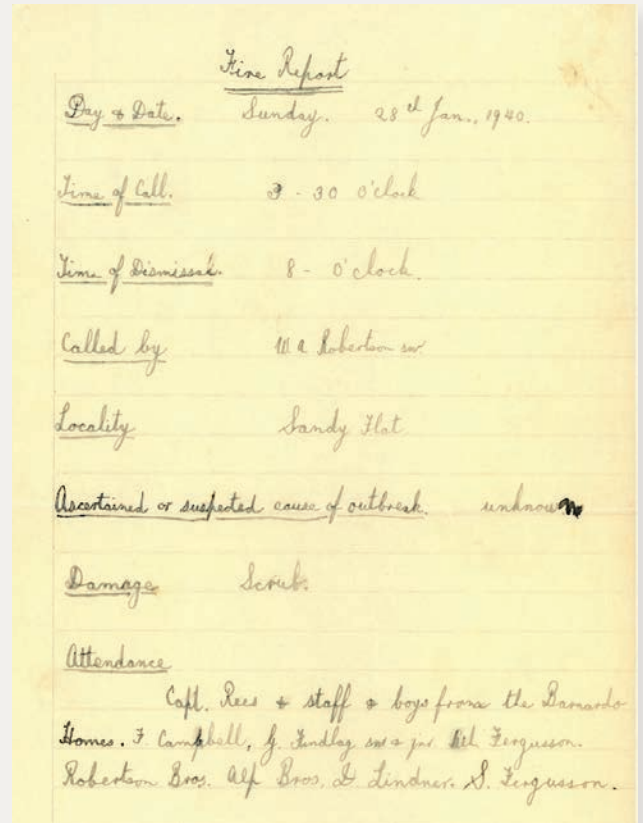 Fire Report
Day & Date. Sunday. 28th Jan., 1940.
Time of Call. 3 - 30 O'clock
Time of Dismissal. 8 - O'clock.
Called by W A Robertson snr.
Locality Sandy Flat
Ascertained or suspected cause of outbreak. unknown
Damage Scrub.
Attendance
Capt. Rees & staff & boys from the Barnardo
Homes. F. Campbell, G. Findlay snr & jnr. Fergusson.
Robertson Bros. Alf Bros. D. Lindner. S. Fergusson.